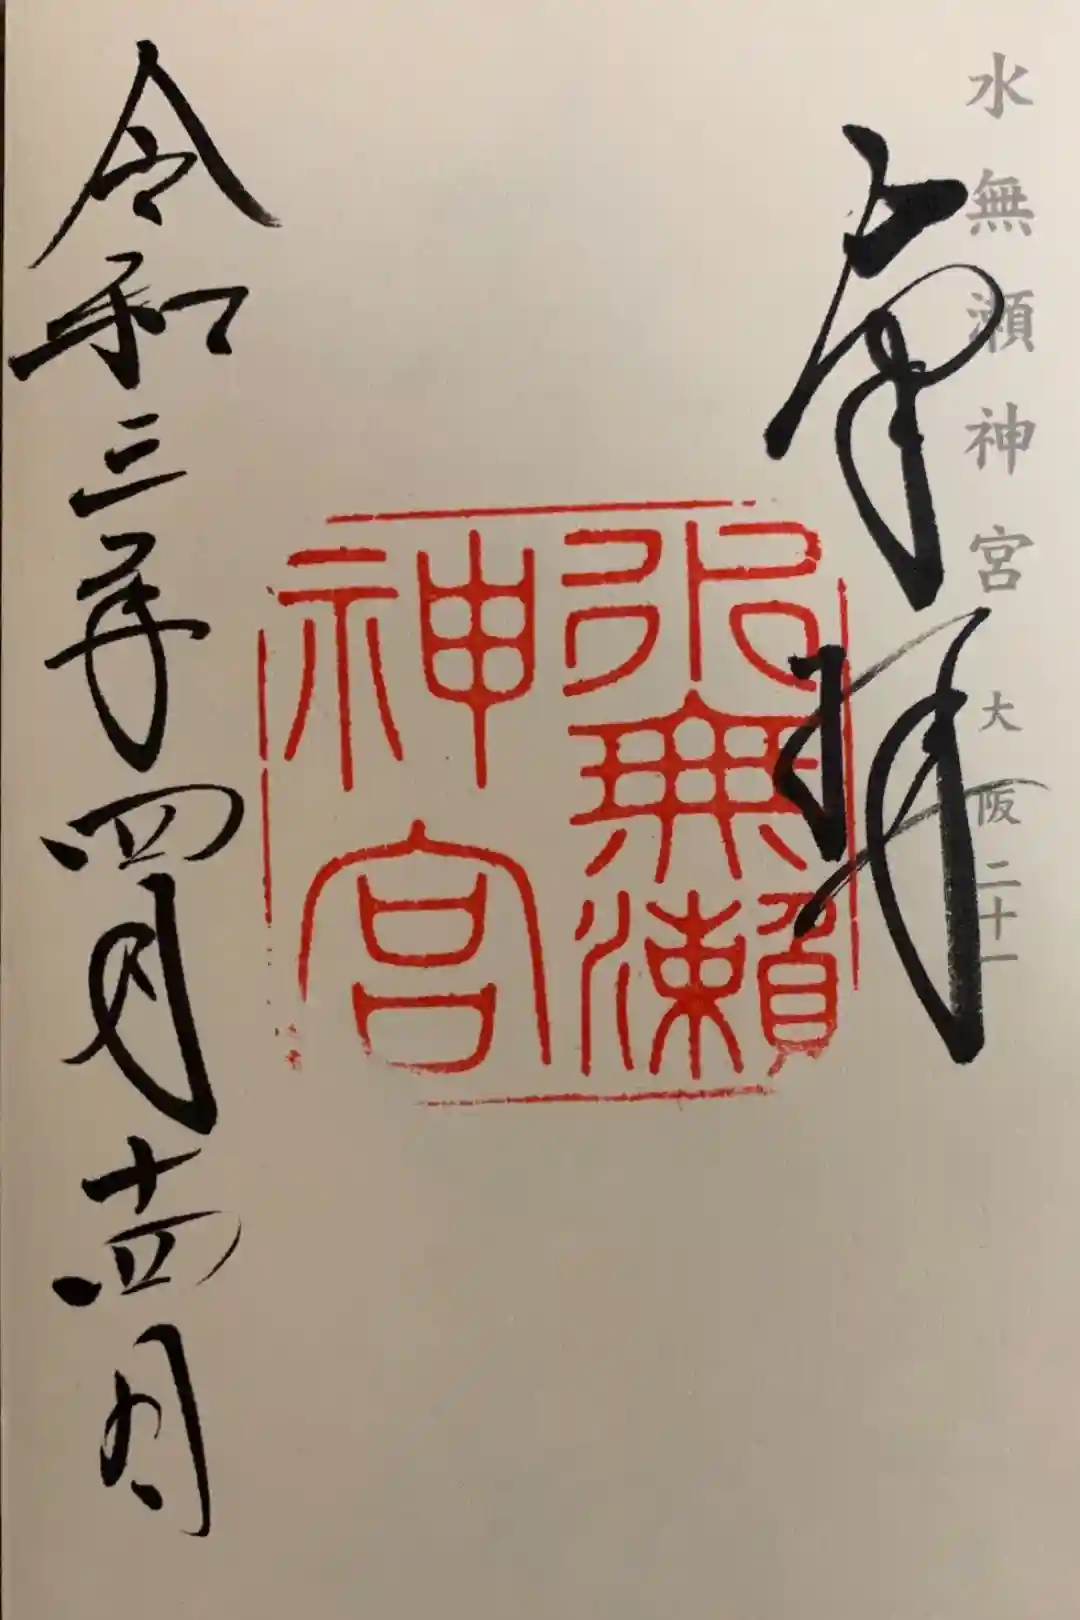 水無瀬神宮 大阪二十一
奉拝
水無瀬
神宮
令和三年四月十四日